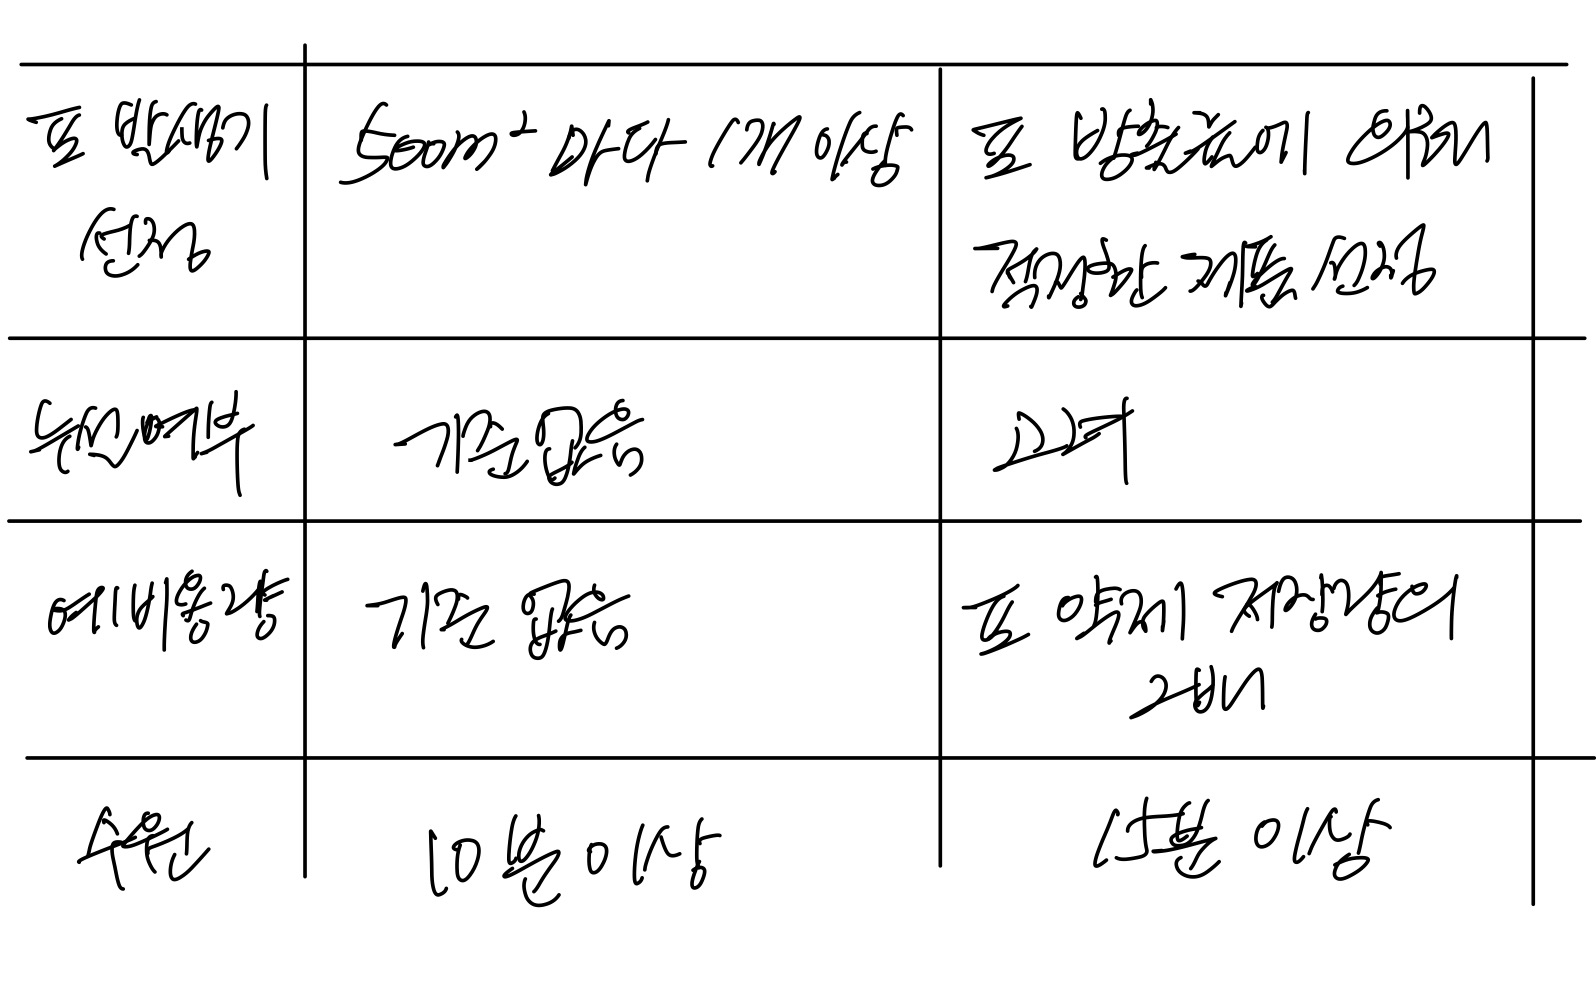 포 발생기 500m² 마다 1개 이상 포 방출률에 의해
선정 적정한 제품 선정
누설여부 기준 없음 고려
예비용량 기준 없음 포 약제 저장량의
2배
수원 10분 이상 15분 이상